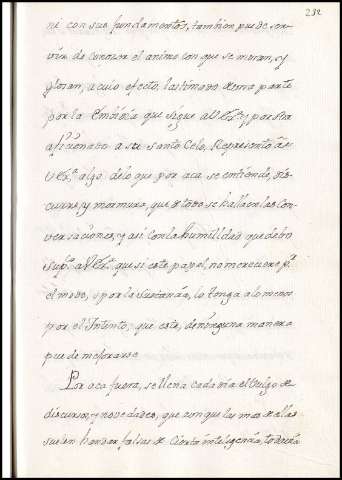 232
ne con sus fundamentos, tambien puede ser-
vir de conocer el animo con que se miran, y
glosan, a cuio efecto, lastimado de ma parte
por la embidia que sigue a VEx.ª y por sra
aficionado a su santo Celo, Represento a
VEx.ª algo de lo que por aca se entiende, dis-
curre, y mormura, que de todo se halla en las con-
versaciones, y asi con la humilldad que debo
sup.co a VEx.ª que si este papel, no mereciere p.r
el modo, o por la sustancia, lo tenga a lo menos
por el Intento, que este, de ninguna manera
puede mejorarse
Por aca fuera, se llena cada dia el Vulgo de
discursos, y novedades, que aunque las mas de ellas
suelen handar falsas de cierta inteligencia, todavia